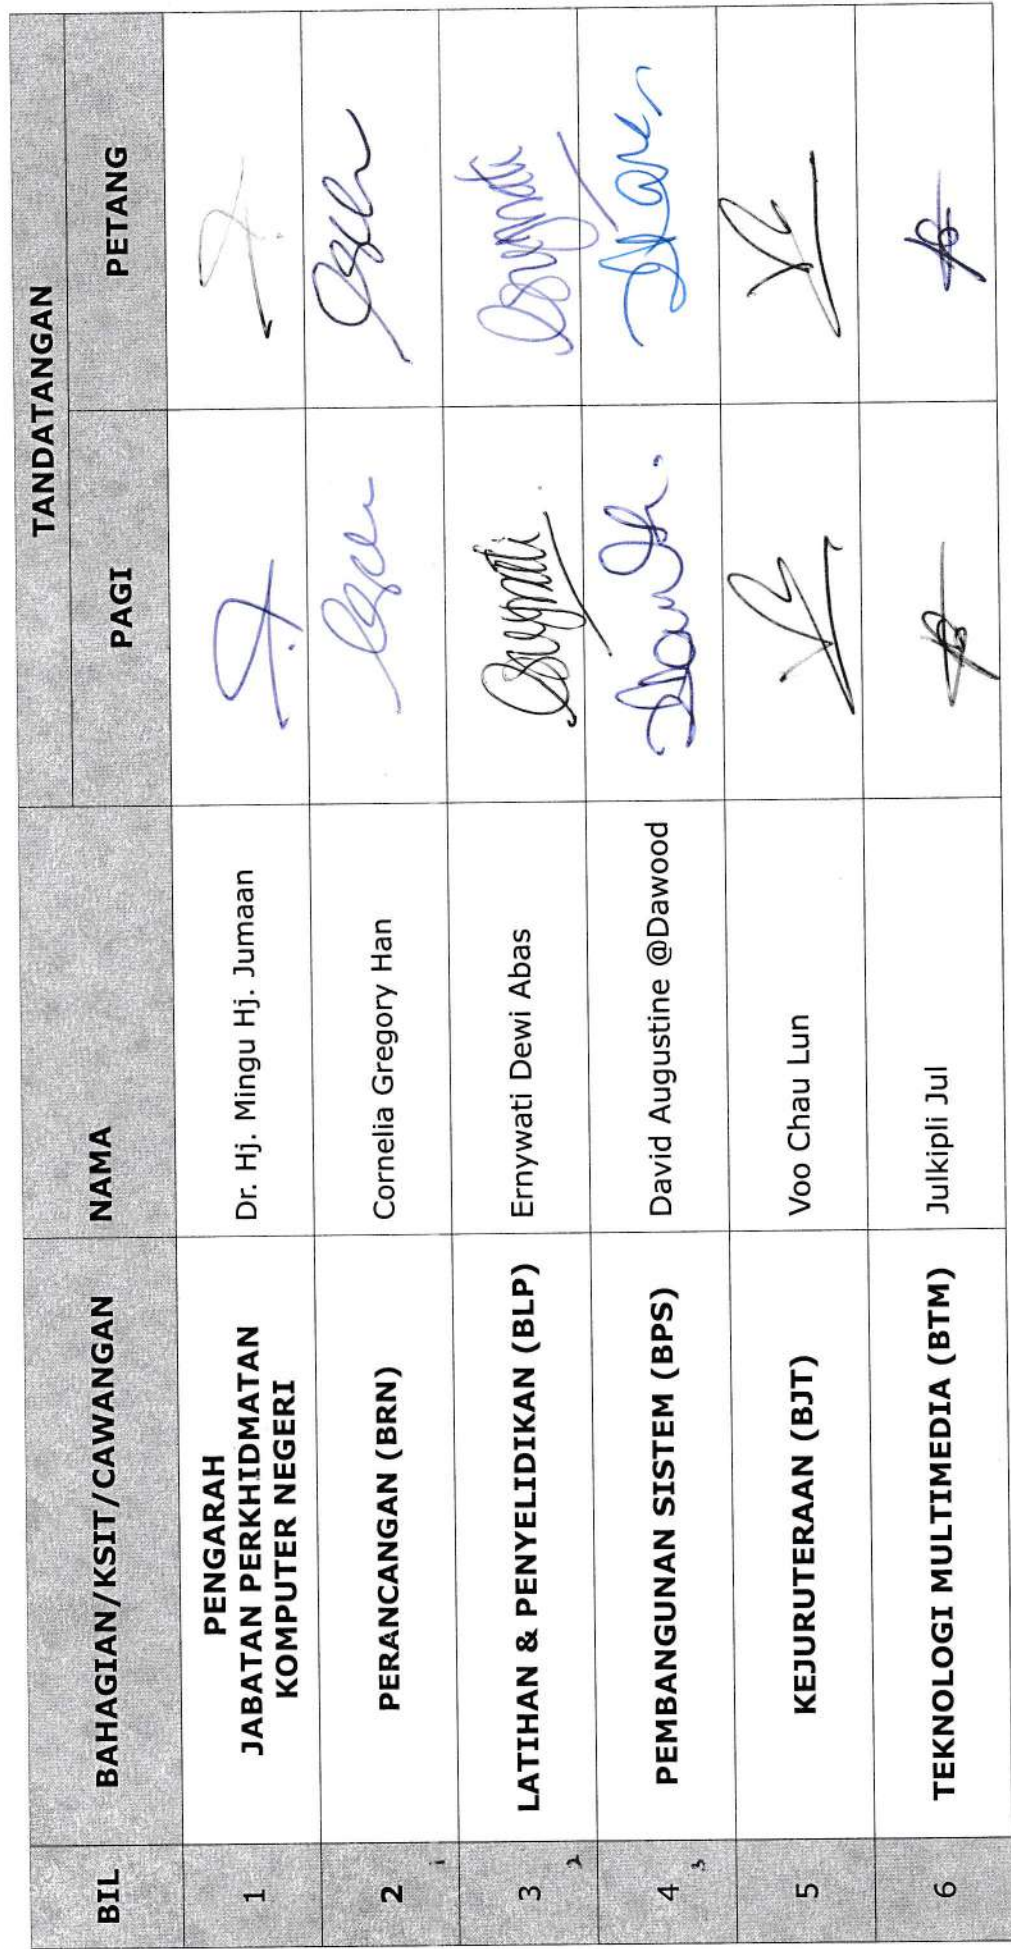 BIL
BAHAGIAN/KSIT/CAWANGAN
NAMA
TANDATANGAN
PAGI
PETANG
1
PENGARAH
JABATAN PERKHIDMATAN
KOMPUTER NEGERI
Dr. Hj. Mingu Hj. Jumaan
2
PERANCANGAN (BRN)
Cornelia Gregory Han
1
3
LATIHAN & PENYELIDIKAN (BLP)
Ernywati Dewi Abas
2
4
PEMBANGUNAN SISTEM (BPS)
David Augustine @Dawood
3
5
KEJURUTERAAN (BJT)
Voo Chau Lun
6
TEKNOLOGI MULTIMEDIA (BTM)
Julkipli Jul